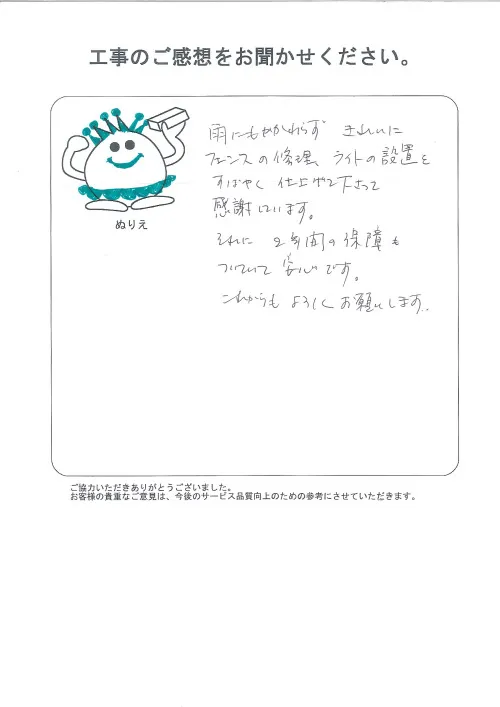 工事のご感想をお聞かせください。
ぬりえ
雨にもかかわらず きれいに
フェンスの修理、ライトの設置を
すばやく 仕上げて下さって
感謝しています。
それに 2年間の保障も
ついていて 安心です。
これからも よろしく お願いします。
ご協力いただきありがとうございました。
お客様の貴重なご意見は、今後のサービス品質向上のための参考にさせていただきます。